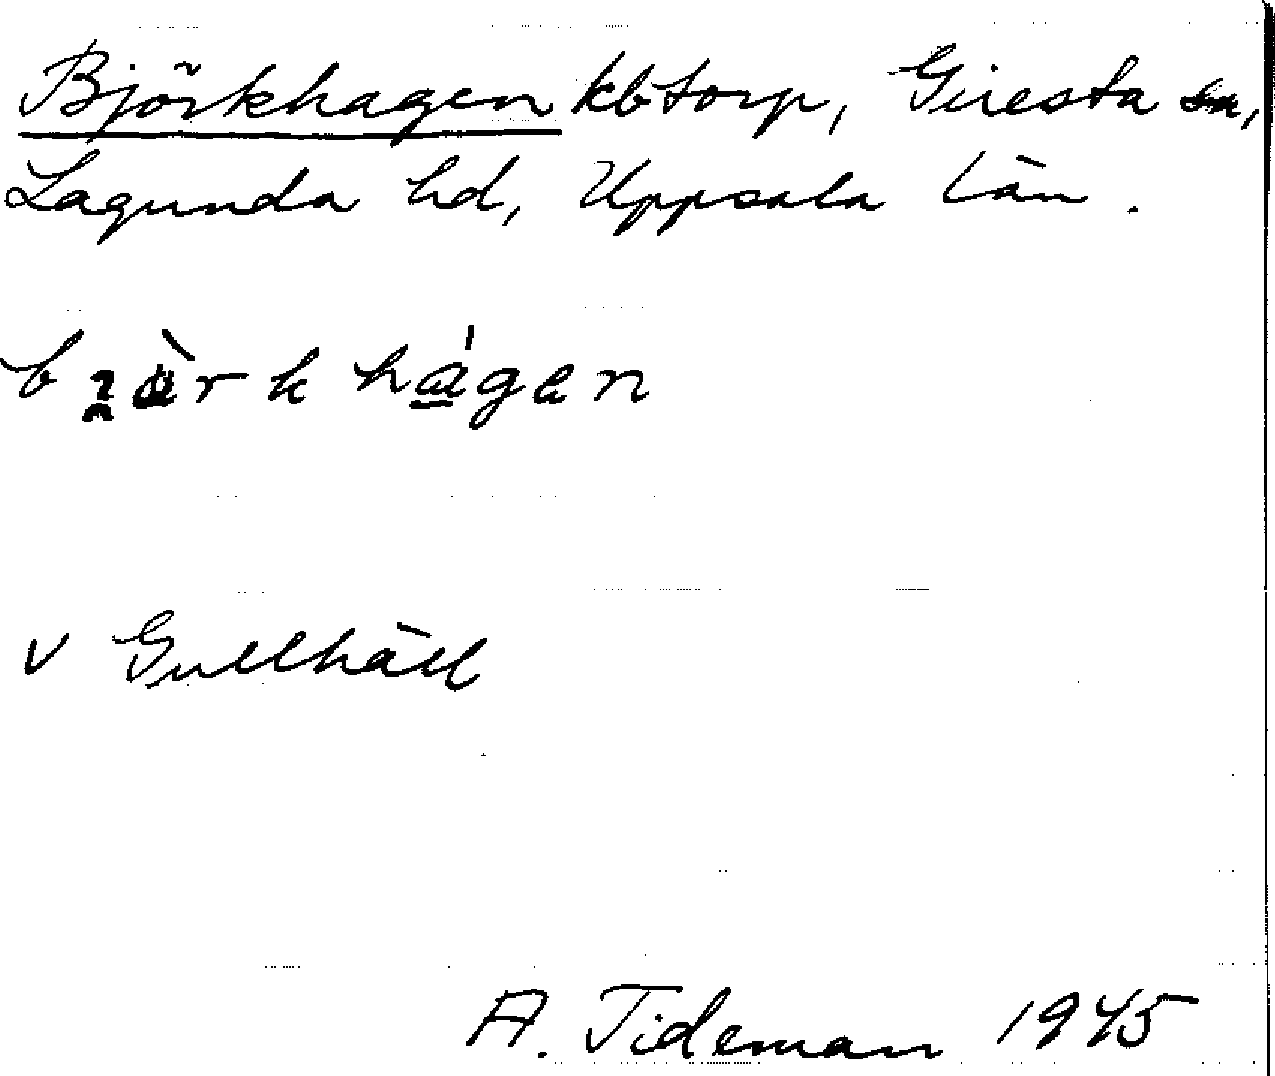 Björkhagen kbtorp, Giresta sn,
Lagunda hd, Uppsala län.
v Gullhäll
A. Tideman 1945